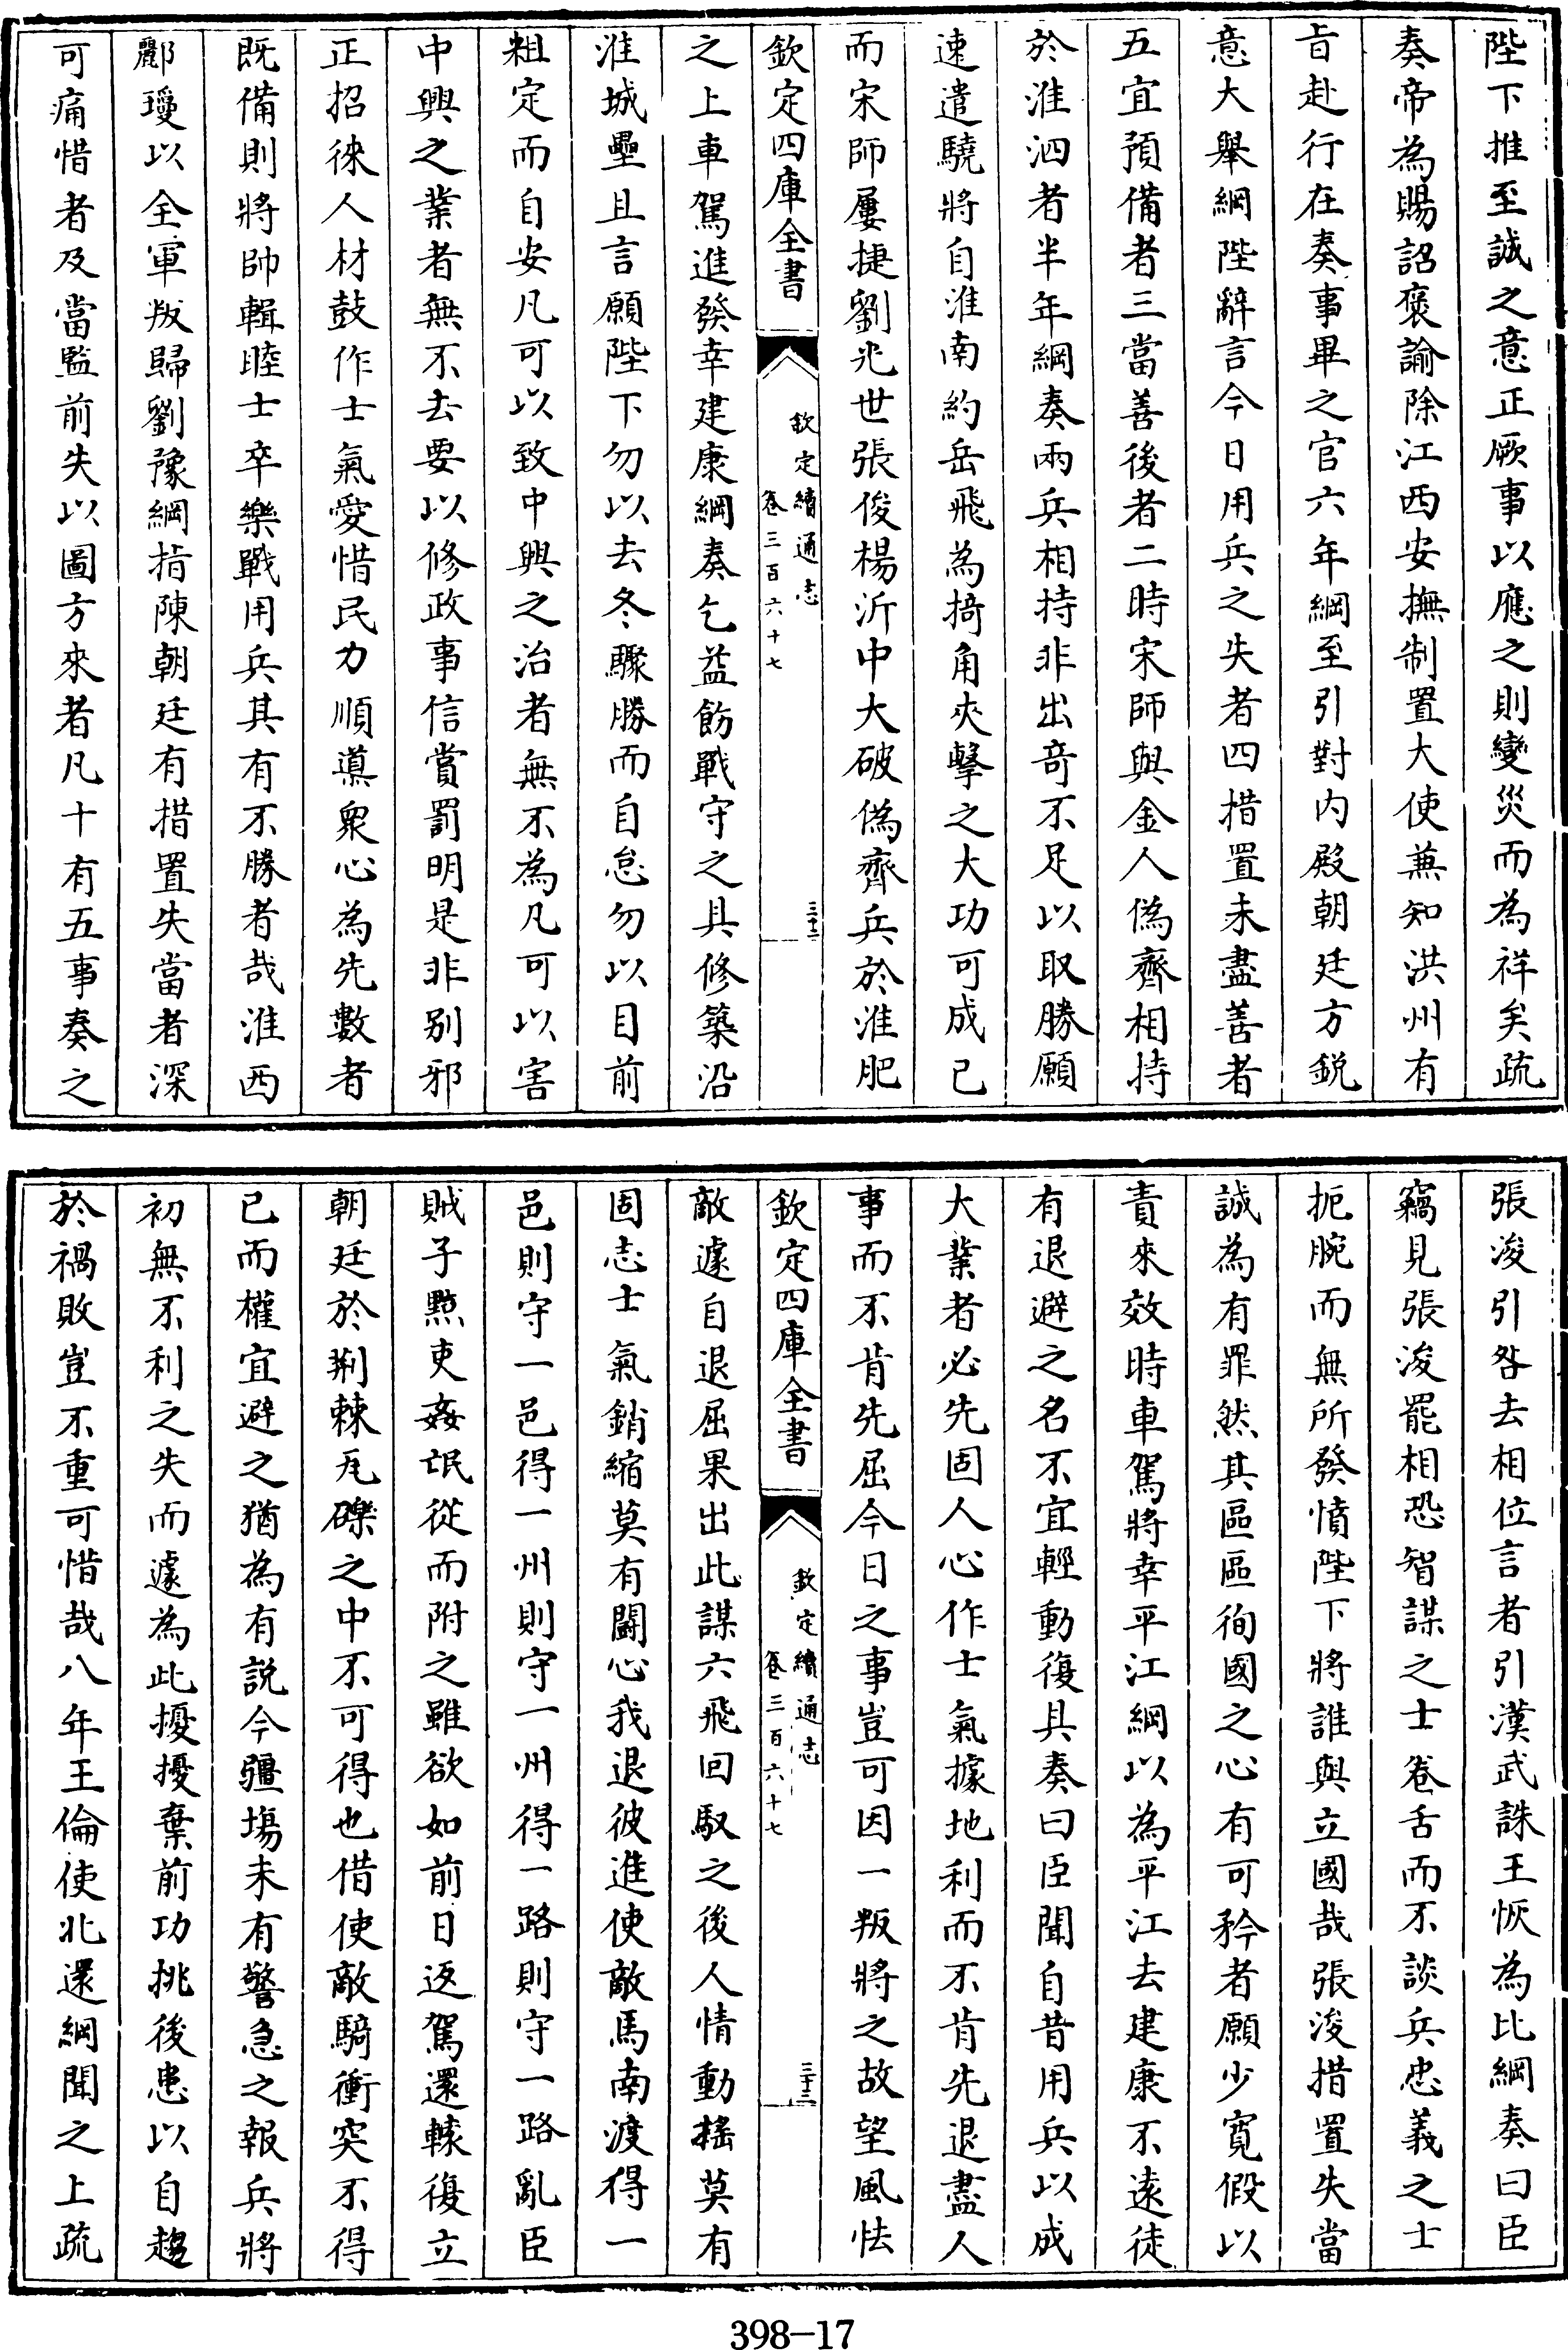 陛下推至誠之意正厥事以應之則變災而為祥矣疏
奏帝為賜詔褒諭除江西安撫制置大使兼知洪州有
旨赴行在奏事畢之官六年綱至引對内殿朝廷方鋭
意大舉綱陛辭言今日用兵之失者四措置未盡善者
五宜預備者三當善後者二時宋師與金人偽齊相持
於淮泗者半年綱奏兩兵相持非出竒不足以取勝願
速遣驍將自淮南約岳飛為掎角夾擊之大功可成已
而宋師屢捷劉光世張俊楊沂中大破偽齊兵於淮肥
欽定四庫全書
欽定續通志
卷三百六十七
三十二
之上車駕進發幸建康綱奏乞益飭戰守之具修築沿
淮城壘且言願陛下勿以去冬驟勝而自怠勿以目前
粗定而自安凡可以致中興之治者無不為凡可以害
中興之業者無不去要以修政事信賞罰明是非别邪
正招徠人材鼓作士氣愛惜民力順導衆心為先數者
既備則將帥輯睦士卒樂戰用兵其有不勝者哉淮西
酈瓊以全軍叛歸劉豫綱指陳朝廷有措置失當者深
可痛惜者及當監前失以圖方來者凡十有五事奏之
張浚引咎去相位言者引漢武誅王恢為比綱奏曰臣
竊見張浚罷相恐智謀之士卷舌而不談兵忠義之士
扼腕而無所發憤陛下將誰與立國哉張浚措置失當
誠為有罪然其區區徇國之心有可矜者願少寛假以
責來效時車駕將幸平江綱以為平江去建康不遠徒
有退避之名不宜輕動復具奏曰臣聞自昔用兵以成
大業者必先固人心作士氣據地利而不肯先退盡人
事而不肯先屈今日之事豈可因一叛將之故望風怯
欽定四庫全書
欽定續通志
卷三百六十七
三十三
敵遽自退屈果出此謀六飛回馭之後人情動摇莫有
固志士氣銷縮莫有鬬心我退彼進使敵馬南渡得一
邑則守一邑得一州則守一州得一路則守一路亂臣
賊子黠吏姦氓從而附之雖欲如前日返駕還轅復立
朝廷於荆棘瓦礫之中不可得也借使敵騎衝突不得
已而權宜避之猶為有説今疆埸未有警急之報兵將
初無不利之失而遽為此擾擾棄前功挑後患以自趨
於禍敗豈不重可惜哉八年王倫使北還綱聞之上疏
398-17